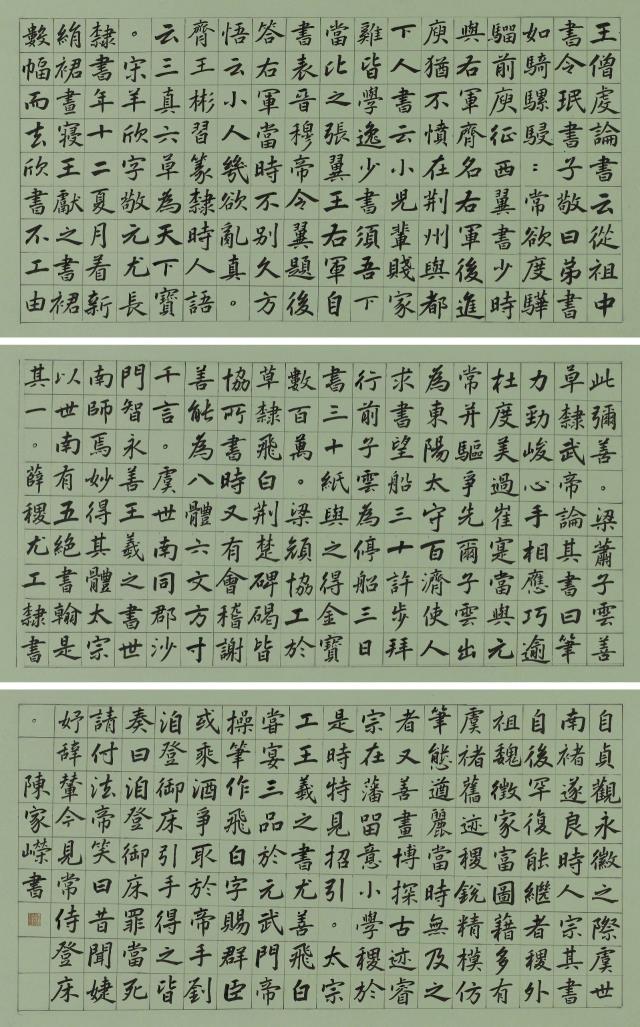 王僧虔論書云從祖中
書令珉書子敬曰弟書
如騎騾駸：常欲度驊
騮前庾征西翼書少時
與右軍齊名右軍後進
庾猶不憤在荊州與都
下人書云小兒輩賤家
雞皆學逸少書須吾下
當比之張翼王右軍自
書表晉穆帝令翼題後
答右軍當時不別久方
悟云小人幾欲亂真。
齊王彬習篆隸時人語
云三真六草為天下寶
。宋羊欣字敬元尤長
隸書年十二夏月着新
絹裙晝寢王獻之書裙
數幅而去欣書不工由
此彌善。梁蕭子雲善
草隸武帝論其書曰筆
力勁峻心手相應巧逾
杜度美過崔寔當與元
常并驅爭先爾子雲出
為東陽太守百濟使人
求書望船三十許步拜
行前子雲為停船三日
書三十紙與之得金寶
數百萬。梁顏協工於
草隸飛白荊楚碑碣皆
協所書時又有會稽謝
善能為八體六文方寸
千言。虞世南同郡沙
門智永善王羲之書世
南師焉妙得其體太宗
以世南有五絕書翰是
其一。薛稷尤工隸書
自貞觀永徽之際虞世
南褚遂良時人宗其書
自後罕復能繼者稷外
祖魏徵家富圖籍多有
虞褚舊迹稷銳精模仿
筆態遒麗當時無及之
者又善畫博探古迹睿
宗在藩留意小學稷於
是時特見招引。太宗
工王羲之書尤善飛白
嘗宴三品於元武門帝
操筆作飛白字賜群臣
或乘酒爭取於帝手劉
洎登御床引手得之皆
奏曰洎登御床罪當死
請付法帝笑曰昔聞婕
妤辭輦今見常侍登床
。陳家嶸書